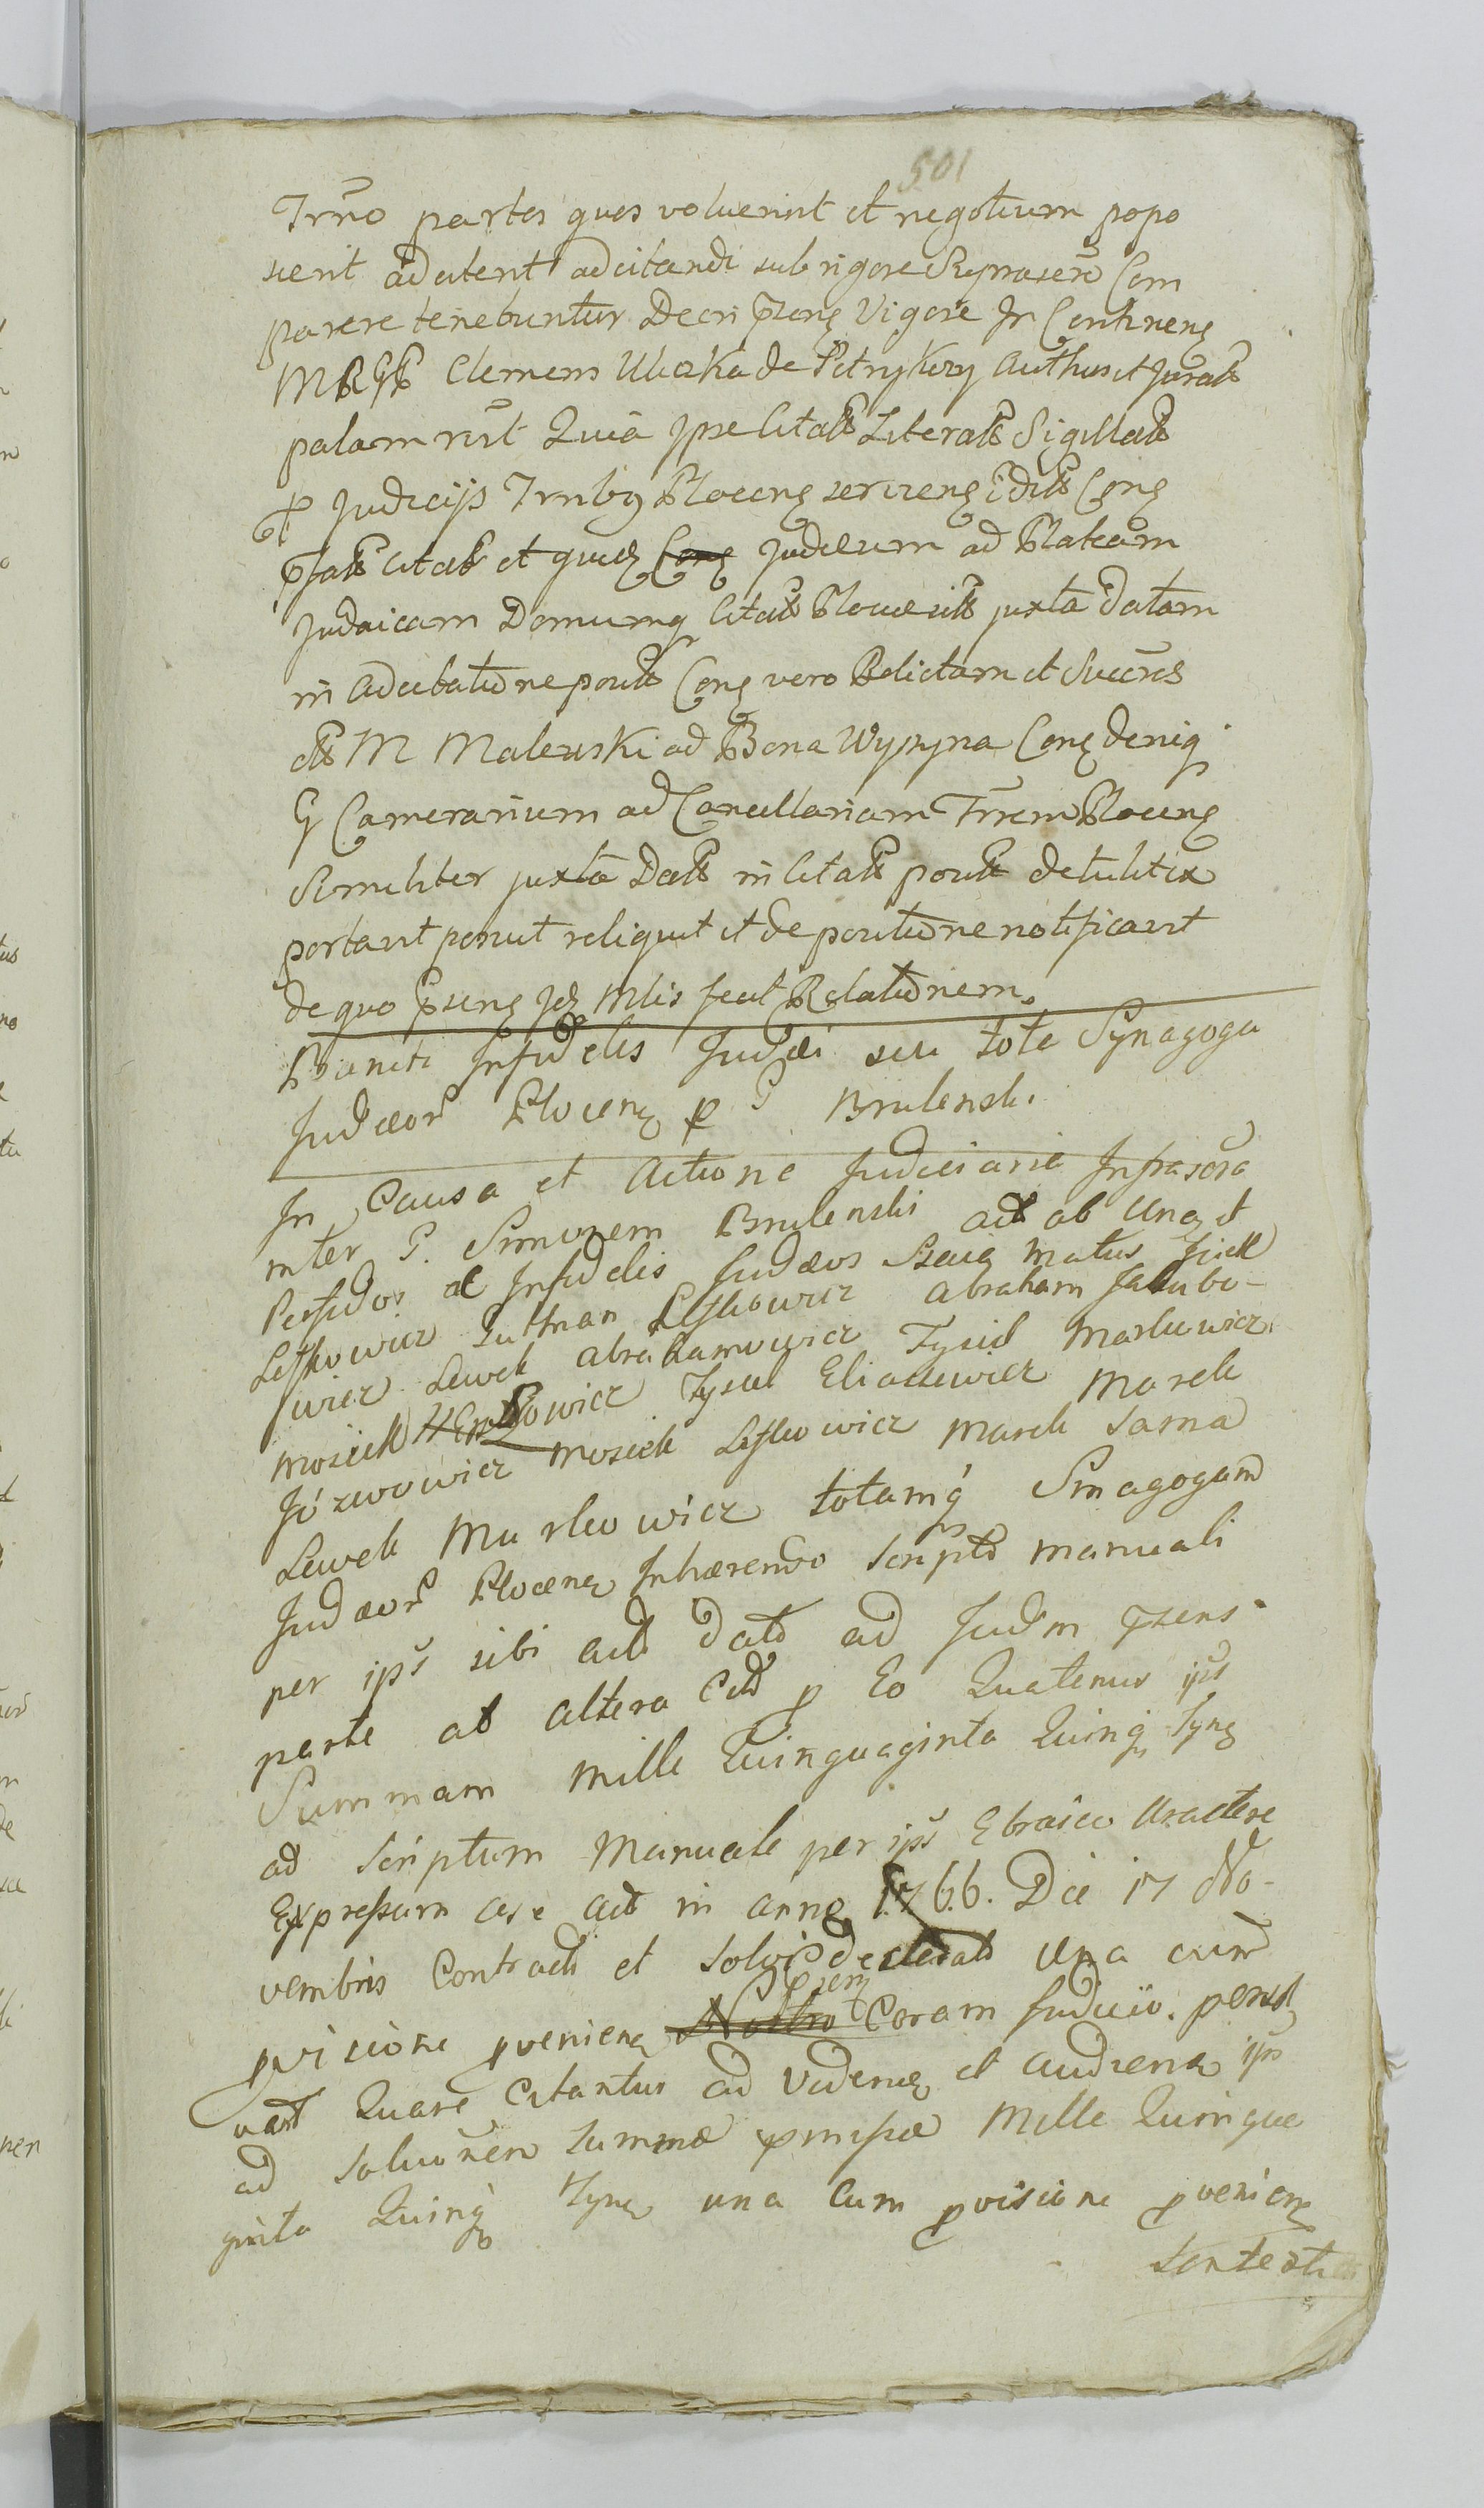 501
Trrno partes quos voluerint et negotium popo
scerit adcitent adcitandi sub rigore Suprascro Com
parere tenebuntur Decri pseng Vigore In Contineng
M R G G Clemens Uliczka de Petrykozy Authus et Jurat
palam rnt Quia Ipse Citat Literat Sigillat
p Judicijs Trrnlbg Ploceng servieng Edit Cong
citat et quid Judæum ad Plateam
Judaicam Domumq citat Plocae sit juxta datam
in adcitatione posit Cong vero Relictam et Succres
olt M Malewski ad Bona Wyszyna Cong deniq
G Camerarium ad Cancellariam Trrem Ploceng
Similiter juxta Dat in citat posit detulit ex
portavit posuit reliquit et de positione notificavit
de quo pseng Jd Mlis fecit Relationem.
Baniti Infidelis Judæi seu tote Synagoga
Judæor Ploceng p G Brulenski
In Causa et Actione Judiciaria Infrascra
inter G. Simonem Brulenski act ab Una et
Perfidos ac Infidelis Judæos Matus Jcick
Lefkowicz Lutman Lefkowicz Abraham Jakubo-
wicz Lewek Abrahamowicz Tysiel Markowicz
Mosiek Herszkowicz Tysiel Eliaszewicz Marek
Józwowicz Mosiek Lefkowicz Marek Sarna
Lewek Markowicz totamq Sinagogam
Judæor Ploceng Inhærendo Scripto Manuali
per ips sibi act dato ad Judm psens
parte ab altera Citt p Eo Quatenus ips
Summam Mille Quinquaginta Quinq Tyng
ad Scriptum Manuale per ips Ebraico Caractere
Expressum ære act in anno 1766. Die 17 No-
vembris Contract et Solvi declarat una cum
provisione proveniena psen Coram Judicio. persol
vant Quare Citantur ad Videnda et audiena ips
ad Solutionem Summæ præmissæ Mille Quinqua
ginta Quinq Tyng una cum provisione provenieng